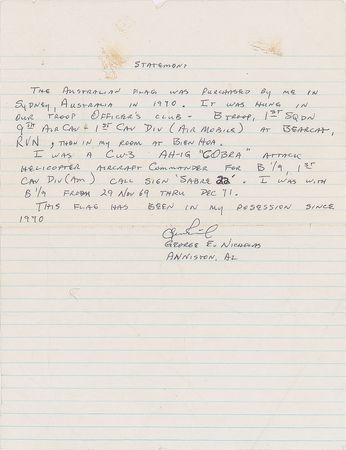 STATEMENT
THE AUSTRALIAN FLAG WAS PURCHASED BY ME IN
SYDNEY, AUSTRALIA IN 1970. IT WAS HUNG IN
OUR TROOP OFFICER'S CLUB - B TROOP, 1ST SQDN
9TH AIR CAV - 1ST CAV DIV (AIR MOBILE) AT BEARCAT,
RVN, THEN IN MY ROOM AT BIEN HOA.
I WAS A CW-3 AH-1G "COBRA" ATTACK
HELICOPTER AIRCRAFT COMMANDER FOR B 1/9, 1ST
CAV DIV (AM) CALL SIGN "SABRE 22". I WAS WITH
B 1/9 FROM 29 NOV 69 THRU DEC 71.
THIS FLAG HAS BEEN IN MY POSESSION SINCE
1970
GEORGE E. NICHOLAS
ANNISTON, AL